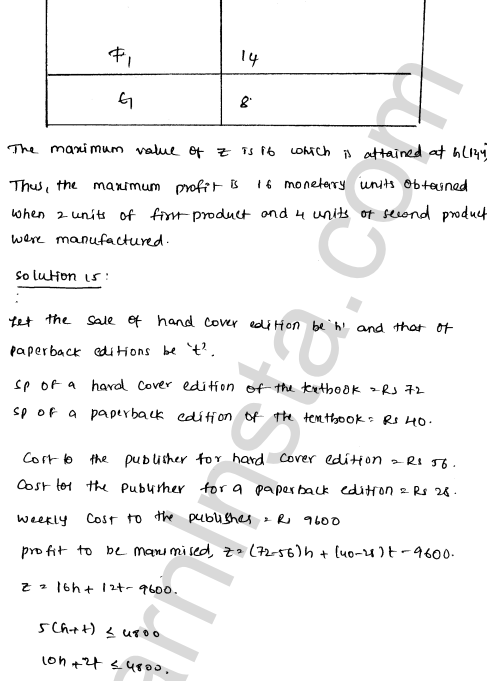 F1 14
G 8
The maximum value of z is 16 which is attained at
Thus, the maximum profit is 16 monetary units obtained
when 2 units of first product and 4 units of second product
were manufactured.
Solution 15:
:
Let the sale of hand cover edition be 'h' and that of
paperback editions be 't'.
SP of a hard cover edition of the textbook = Rs 72
SP of a paperback edition of the textbook = Rs 40.
Cost to the publisher for hard cover edition = Rs 56.
Cost for the publisher for a paperback edition = Rs 28.
Weekly cost to the publisher = Rs 9600
profit to be maximised, z = (72-56)h + (40-28)t - 9600.
z = 16h + 12t - 9600.
5(h+t) ≤ 4800
10h + 2t ≤ 4800.
arninsta.com